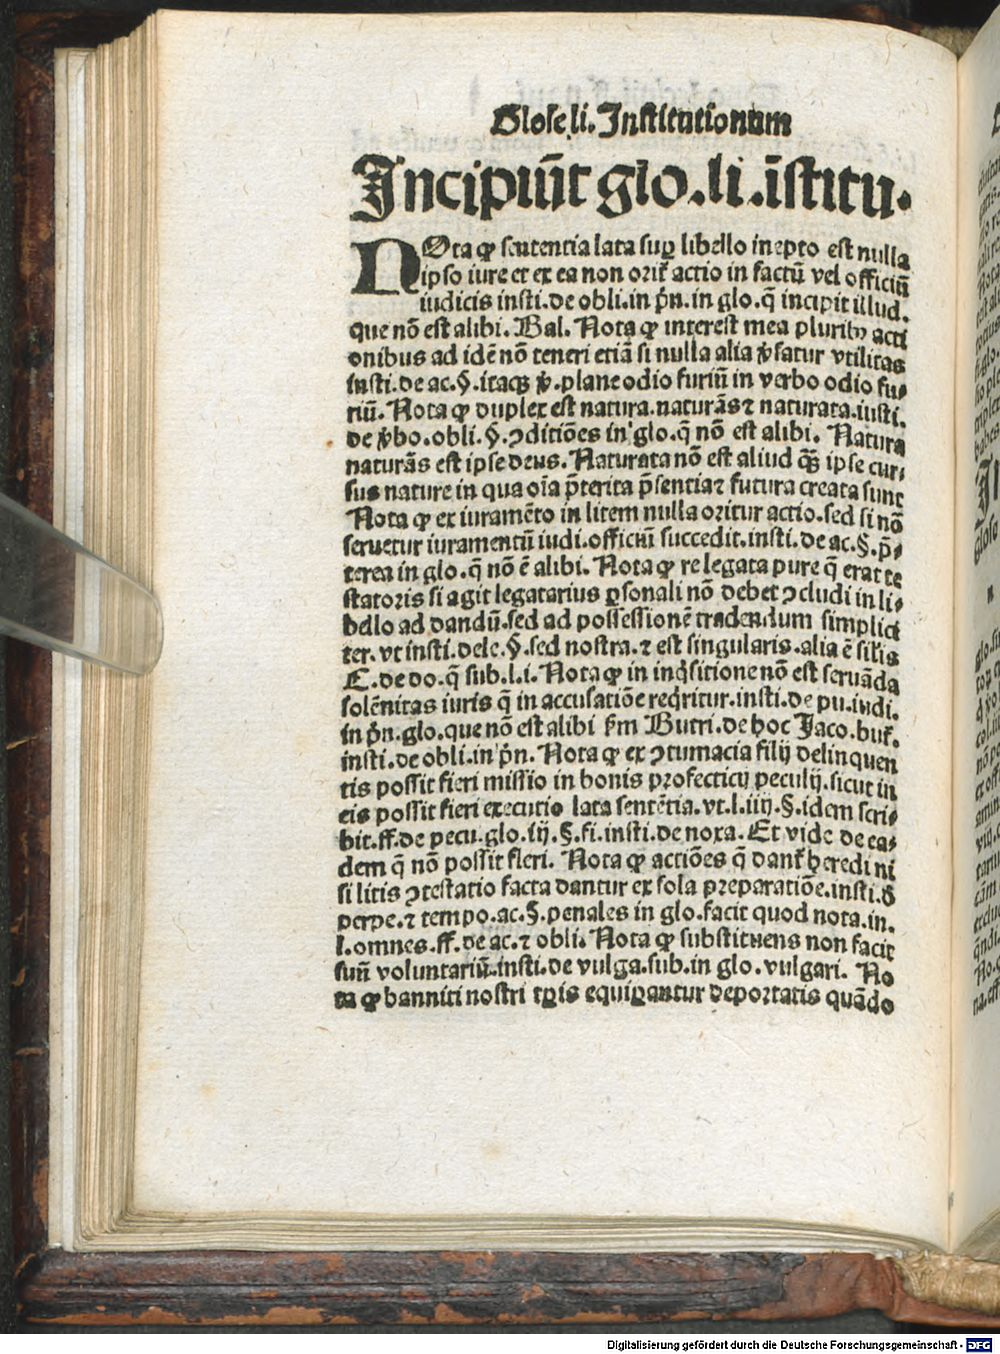 Glose li. Institutionum
Incipiūt glo. li. īstitu.
NOta ꝙ sententia lata suꝑ libello inepto est nulla
ipso iure et ex ea non orit̉ actio in factū vel officiū
iudicis insti. de obli. in pͥn. in glo. q̄ incipit illud.
que nō est alibi. Bal. Nota ꝙ interest mea pluribꝰ acti
onibus ad idē nō teneri etiā si nulla alia ꝟsatur vtilitas
insti. de ac. §. itaqꝫ ꝟ. plane odio furiū in verbo odio fu⸗
riū. Nota ꝙ duplex est natura. naturās ⁊ naturata. insti.
de ꝟbo. obli. §. ꝯditiōes in glo. q̄ nō est alibi. Natura
naturās est ipse deus. Naturata nō est aliud qꝫ̄ ipse cur⸗
sus nature in qua oīa p̄terita p̄sentia ⁊ futura creata sunt
Nota ꝙ ex iuramēto in litem nulla oritur actio. sed si nō
seruetur iuramentū iudi. officiū succedit. insti. de ac. §. p̄⸗
terea in glo. q̄ nō ē alibi. Nota ꝙ re legata pure q̄ erat te
statoris si agit legatarius ꝑsonali nō debet ꝯcludi in li⸗
bello ad dandū. sed ad possessionē tradendum simplici
ter. vt insti. dele. §. sed nostra. ⁊ est singularis. alia ē sil̄is
C. de do. q̄ sub. l. i. Nota ꝙ in inqͥsitione nō est seruāda
solēnitas iuris q̄ in accusatiōe reqͥritur. insti. de pu. iudi.
in pͥn. glo. que nō est alibi ẜm Butri. de hoc Jaco. but̉.
insti. de obli. in pͥn. Nota ꝙ ex ꝯtumacia filij delinquen
tis possit fieri missio in bonis profecticij peculij. sicut in
eis possit fieri executio lata sentētia. vt. l. iiij. §. idem scri⸗
bit. ff. de pecu. glo. iij. §. fi. insti. de noxa. Et vide de ea⸗
dem q̄ nō possit fieri. Nota ꝙ actiōes q̄ dant̉ heredi ni
si litis ꝯtestatio facta dantur ex sola preparatiōe. insti. đ
perpe. ⁊ tempo. ac. §. penales in glo. facit quod nota. in.
l. omnes. ff. de ac. ⁊ obli. Nota ꝙ substituens non facit
suū voluntariū. insti. de vulga. sub. in glo. vulgari. No
ta ꝙ banniti nostri tꝑis equiꝑantur deportatis quādo
Digitalisierung gefördert durch die Deutsche Forschungsgemeinschaft - DFG